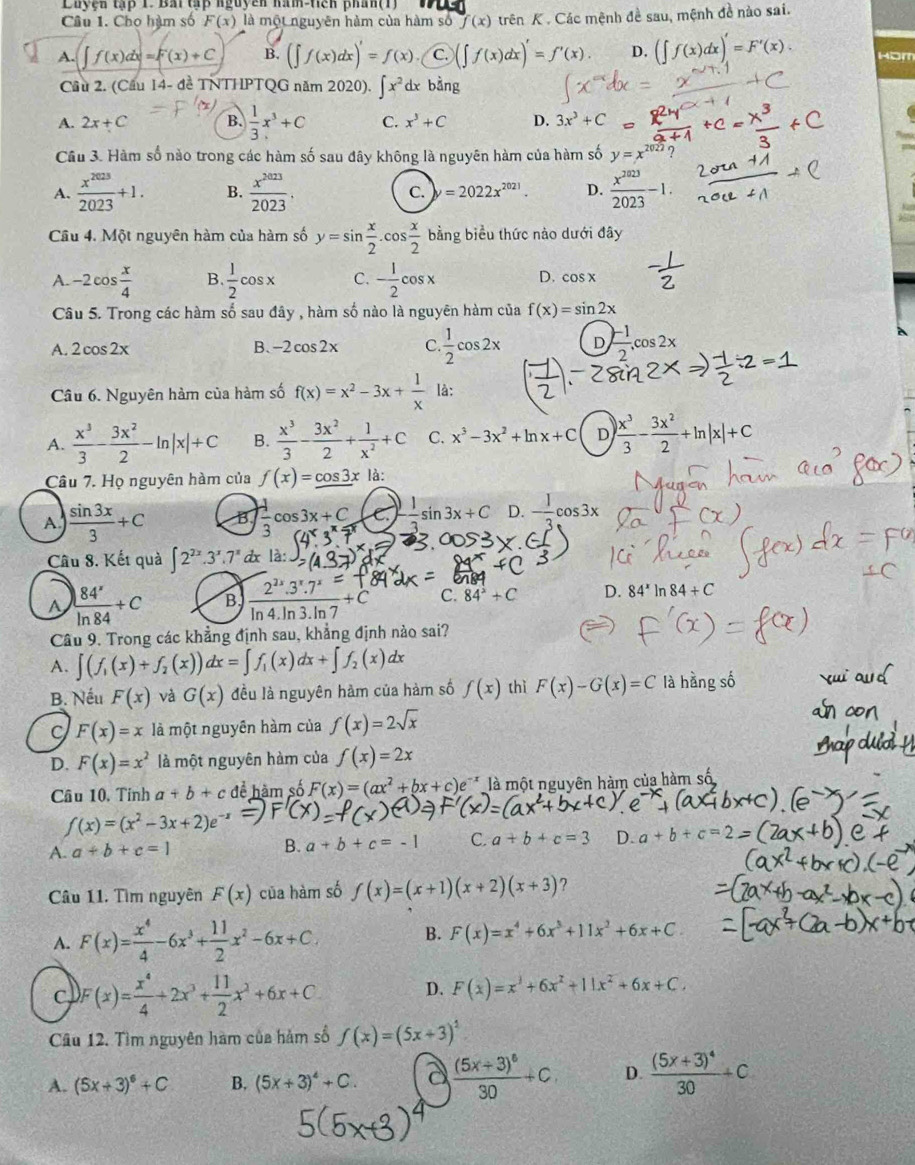 Luyện tập 1. Bài tập nguyên hàm-tích phân(1)
Câu 1. Cho hàm số F(x) là một nguyên hàm của hàm số f(x) trên K . Các mệnh đề sau, mệnh đề nào sai.
A. (∫f(x)dx = F(x) + C B. (∫f(x)dx)' = f(x). C. (∫f(x)dx)' = f'(x). D. (∫f(x)dx)' = F'(x).
Câu 2. (Cầu 14- đề TNTHPTQG năm 2020). ∫x²dx bằng
∫x^α dx = x^(α+1)/(α+1) + C
= F'(x)
A. 2x + C B. 1/3 x³ + C C. x³ + C D. 3x³ + C
+ C = x³/3 + C
Câu 3. Hàm số nào trong các hàm số sau đây không là nguyên hàm của hàm số y = x^2022 ?
A. x^2023/2023 + 1. B. x^2023/2023. C. y = 2022x^2021. D. x^2023/2023 − 1.
Câu 4. Một nguyên hàm của hàm số y = sin x/2 . cos x/2 bằng biểu thức nào dưới đây
A. −2cos x/4 B. 1/2 cos x C. −1/2 cos x D. cos x
−1/2
Câu 5. Trong các hàm số sau đây , hàm số nào là nguyên hàm của f(x) = sin 2x
A. 2cos 2x B. −2cos 2x C. 1/2 cos 2x D −1/2 .cos 2x
(−1/2).−2sin2x ⇒ 1/2 . 2 = 1
Câu 6. Nguyên hàm của hàm số f(x) = x² − 3x + 1/x là:
A. x³/3 − 3x²/2 − ln|x| + C B. x³/3 − 3x²/2 + 1/x² + C C. x³ − 3x² + ln x + C D x³/3 − 3x²/2 + ln|x| + C
Câu 7. Họ nguyên hàm của f(x) = cos 3x là:
Nguyên hàm của f(x)
A. sin 3x/3 + C B. 1/3 cos 3x + C C. −1/3 sin 3x + C D. −1/3 cos 3x
là F(x)
Câu 8. Kết quả ∫2^2x.3^x.7^x dx là:
kí hiệu ∫f(x)dx = F(x) + C
A 84^x/ln 84 + C B. 2^2x.3^x.7^x/ln 4.ln 3.ln 7 + C C. 84^x + C D. 84^x ln 84 + C
⇔ F'(x) = f(x)
Câu 9. Trong các khẳng định sau, khẳng định nào sai?
A. ∫(f₁(x) + f₂(x))dx = ∫f₁(x)dx + ∫f₂(x)dx
B. Nếu F(x) và G(x) đều là nguyên hàm của hàm số f(x) thì F(x) − G(x) = C là hằng số
C F(x) = x là một nguyên hàm của f(x) = 2√x
D. F(x) = x² là một nguyên hàm của f(x) = 2x
Câu 10. Tính a + b + c để hàm số F(x) = (ax² + bx + c)e^−x là một nguyên hàm của hàm số
f(x) = (x² − 3x + 2)e^−x
⇒ F'(x) = f(x) ⇒ F'(x) = (ax² + bx + c)'.e^−x + (ax² + bx + c).(e^−x)' =
A. a + b + c = 1 B. a + b + c = −1 C. a + b + c = 3 D. a + b + c = 2
= (2ax + b).e^−x +
(ax² + bx + c).(−e^−x
Câu 11. Tìm nguyên F(x) của hàm số f(x) = (x + 1)(x + 2)(x + 3)?
= (2ax + b − ax² − bx − c)
A. F(x) = x⁴/4 − 6x³ + 11/2 x² − 6x + C. B. F(x) = x⁴ + 6x³ + 11x² + 6x + C.
= [−ax² + (2a − b)x + b −
C F(x) = x⁴/4 + 2x³ + 11/2 x² + 6x + C. D. F(x) = x³ + 6x² + 11x² + 6x + C.
Câu 12. Tìm nguyên hàm của hàm số f(x) = (5x + 3)⁵.
A. (5x + 3)⁶ + C B. (5x + 3)⁴ + C. C (5x + 3)⁶/30 + C. D. (5x + 3)⁴/30 + C
5(5x+3)⁴